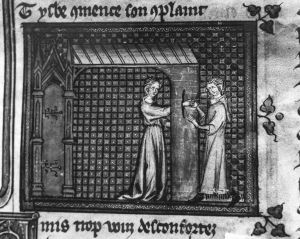 Tysbe qmence son oplaint
mis trop vuin desconfortez